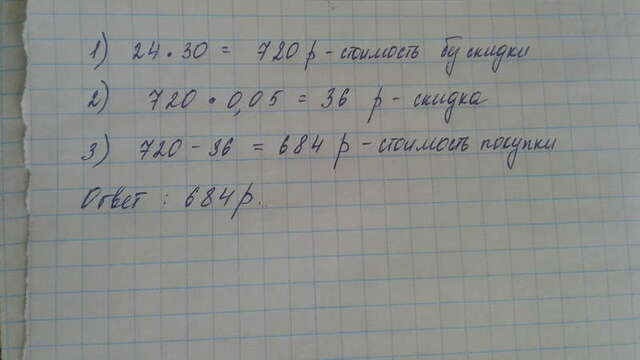 1) 24 • 30 = 720 р - стоимость без скидки
2) 720 • 0,05 = 36 р - скидка
3) 720 - 36 = 684 р - стоимость покупки
Ответ : 684 р.